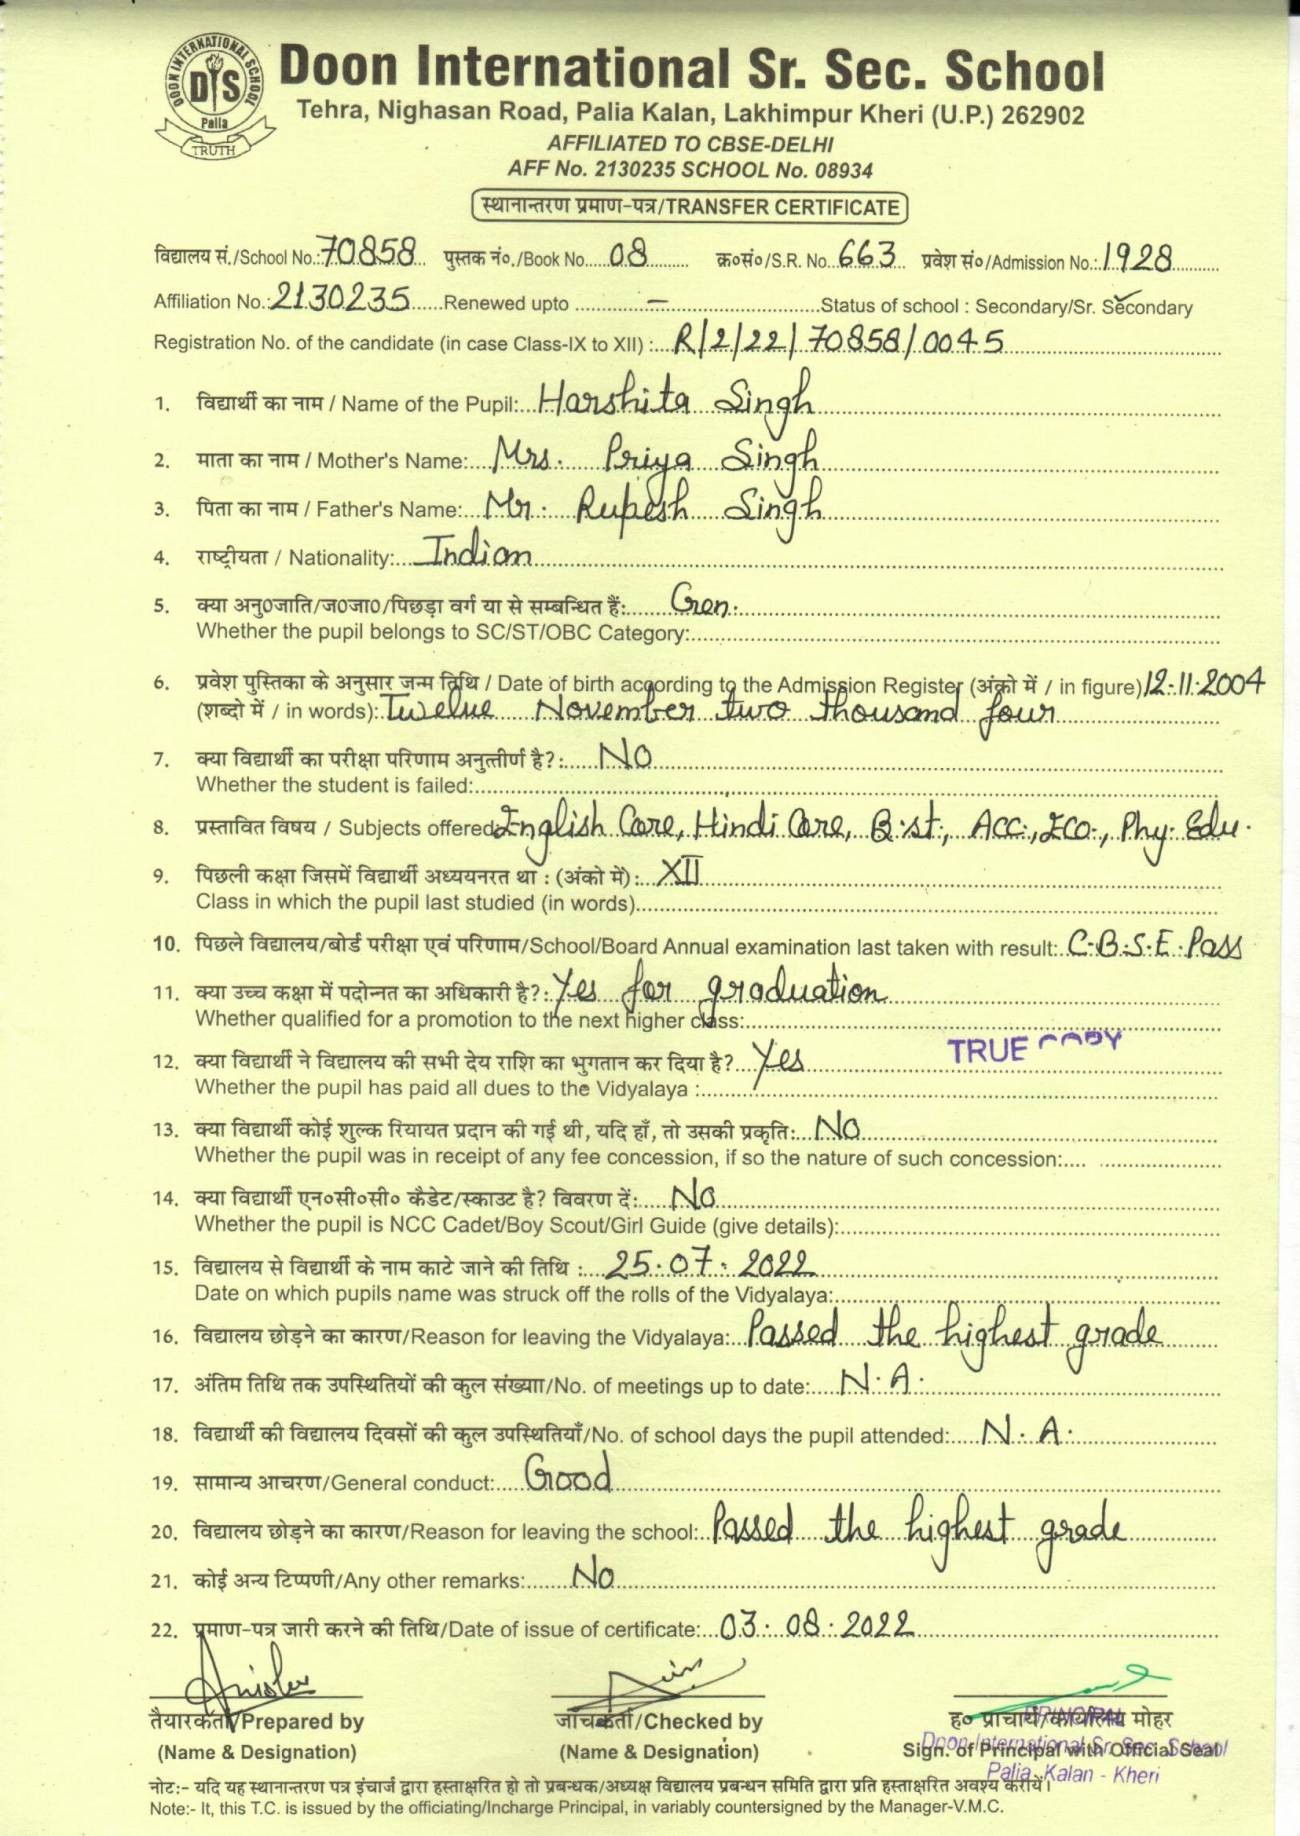 DOON INTERNATIONAL SCHOOL
DIS
Palia
TRUTH
Doon International Sr. Sec. School
Tehra, Nighasan Road, Palia Kalan, Lakhimpur Kheri (U.P.) 262902
AFFILIATED TO CBSE-DELHI
AFF No. 2130235 SCHOOL No. 08934
स्थानान्तरण प्रमाण-पत्र/TRANSFER CERTIFICATE
विद्यालय सं./School No.:70858 पुस्तक नं०./Book No.....08......... क्र०सं०/S.R. No.663 प्रवेश सं०/Admission No.:1928
Affiliation No.:2130235......Renewed upto ............–............Status of school : Secondary/Sr. Secondary
Registration No. of the candidate (in case Class-IX to XII) :...R/2/22/70858/0045
1. विद्यार्थी का नाम / Name of the Pupil:..Harshita Singh
2. माता का नाम / Mother's Name:...Mrs. Priya Singh
3. पिता का नाम / Father's Name:...Mr. Rupesh Singh
4. राष्ट्रीयता / Nationality:...Indian
5. क्या अनु0जाति/ज0जा0/पिछड़ा वर्ग या से सम्बन्धित हैं:......Gen.
Whether the pupil belongs to SC/ST/OBC Category:......
6. प्रवेश पुस्तिका के अनुसार जन्म तिथि / Date of birth according to the Admission Register (अंको में / in figure)12-11-2004
(शब्दो में / in words):Twelve November two thousand four
7. क्या विद्यार्थी का परीक्षा परिणाम अनुत्तीर्ण है?:.....No
Whether the student is failed:......
8. प्रस्तावित विषय / Subjects offered:English Core, Hindi Core, B.st., Acc., Eco., Phy. Edu.
9. पिछली कक्षा जिसमें विद्यार्थी अध्ययनरत था : (अंको में):..XII
Class in which the pupil last studied (in words)......
10. पिछले विद्यालय/बोर्ड परीक्षा एवं परिणाम/School/Board Annual examination last taken with result:..C.B.S.E. Pass
11. क्या उच्च कक्षा में पदोन्नत का अधिकारी है?:.Yes for graduation
Whether qualified for a promotion to the next higher class:......
TRUE COPY
12. क्या विद्यार्थी ने विद्यालय की सभी देय राशि का भुगतान कर दिया है?...Yes
Whether the pupil has paid all dues to the Vidyalaya :......
13. क्या विद्यार्थी कोई शुल्क रियायत प्रदान की गई थी, यदि हाँ, तो उसकी प्रकृति:...No
Whether the pupil was in receipt of any fee concession, if so the nature of such concession:....
14. क्या विद्यार्थी एन०सी०सी० कैडेट/स्काउट है? विवरण दें:.....No
Whether the pupil is NCC Cadet/Boy Scout/Girl Guide (give details):......
15. विद्यालय से विद्यार्थी के नाम काटे जाने की तिथि :...25.07.2022
Date on which pupils name was struck off the rolls of the Vidyalaya:......
16. विद्यालय छोड़ने का कारण/Reason for leaving the Vidyalaya:..Passed the highest grade
17. अंतिम तिथि तक उपस्थितियों की कुल संख्याा/No. of meetings up to date:....N.A.
18. विद्यार्थी की विद्यालय दिवसों की कुल उपस्थितियाँ/No. of school days the pupil attended:....N.A.
19. सामान्य आचरण/General conduct:....Good
20. विद्यालय छोड़ने का कारण/Reason for leaving the school:..Passed the highest grade
21. कोई अन्य टिप्पणी/Any other remarks:......No
22. प्रमाण-पत्र जारी करने की तिथि/Date of issue of certificate:..03.08.2022
तैयारकर्ता/Prepared by जांचकर्ता/Checked by ह० प्राचार्य/कार्यालय मोहर
PRINCIPAL
(Name & Designation) (Name & Designation) Sign. of Principal with Official Seal
Doon International Sr. Sec. School
Palia-Kalan - Kheri
नोट:- यदि यह स्थानान्तरण पत्र इंचार्ज द्वारा हस्ताक्षरित हो तो प्रबन्धक/अध्यक्ष विद्यालय प्रबन्धन समिति द्वारा प्रति हस्ताक्षरित अवश्य करायें।
Note:- It, this T.C. is issued by the officiating/Incharge Principal, in variably countersigned by the Manager-V.M.C.